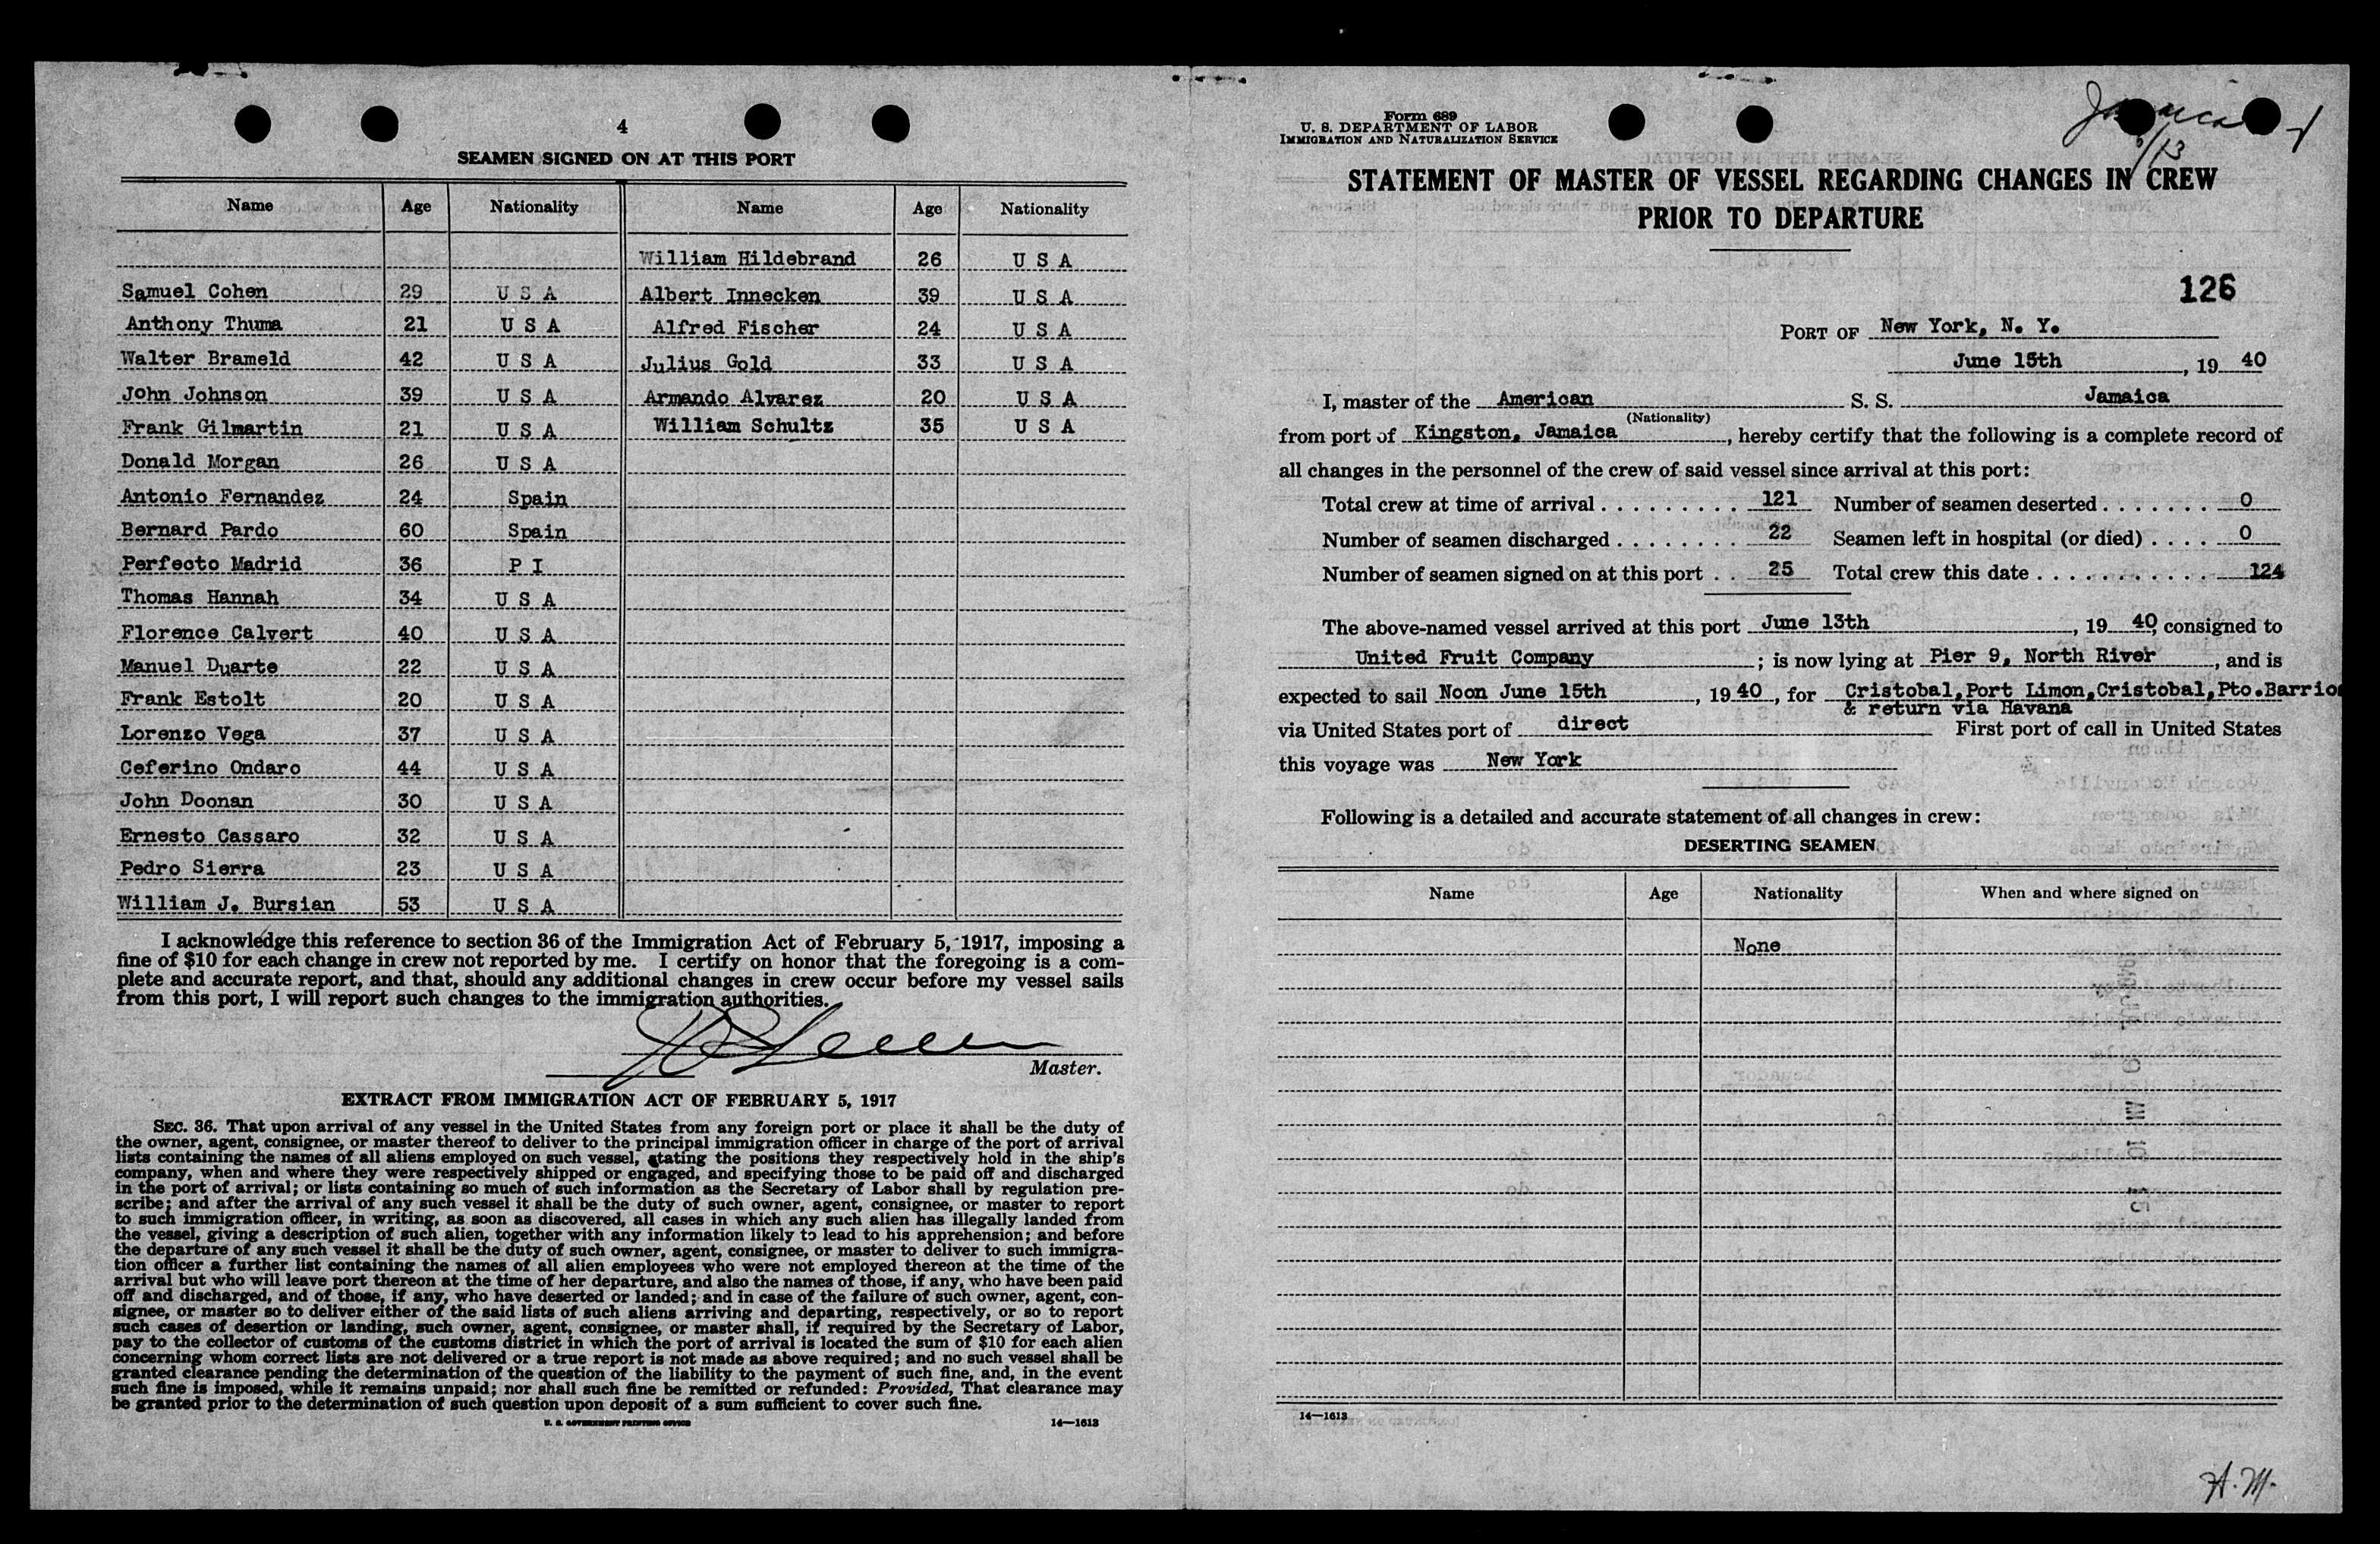 4
SEAMEN SIGNED ON AT THIS PORT
Name Age Nationality Name Age Nationality
William Hildebrand 26 U S A
Samuel Cohen 29 U S A Albert Innecken 39 U S A
Anthony Thuma 21 U S A Alfred Fischer 24 U S A
Walter Brameld 42 U S A Julius Gold 33 U S A
John Johnson 39 U S A Armando Alvarez 20 U S A
Frank Gilmartin 21 U S A William Schultz 35 U S A
Donald Morgan 26 U S A
Antonio Fernandez 24 Spain
Bernard Pardo 60 Spain
Perfecto Madrid 36 P I
Thomas Hannah 34 U S A
Florence Calvert 40 U S A
Manuel Duarte 22 U S A
Frank Estolt 20 U S A
Lorenzo Vega 37 U S A
Ceferino Ondaro 44 U S A
John Doonan 30 U S A
Ernesto Cassaro 32 U S A
Pedro Sierra 23 U S A
William J. Bursian 53 U S A
I acknowledge this reference to section 36 of the Immigration Act of February 5, 1917, imposing a
fine of $10 for each change in crew not reported by me. I certify on honor that the foregoing is a com-
plete and accurate report, and that, should any additional changes in crew occur before my vessel sails
from this port, I will report such changes to the immigration authorities.
Master.
EXTRACT FROM IMMIGRATION ACT OF FEBRUARY 5, 1917
SEC. 36. That upon arrival of any vessel in the United States from any foreign port or place it shall be the duty of
the owner, agent, consignee, or master thereof to deliver to the principal immigration officer in charge of the port of arrival
lists containing the names of all aliens employed on such vessel, stating the positions they respectively hold in the ship's
company, when and where they were respectively shipped or engaged, and specifying those to be paid off and discharged
in the port of arrival; or lists containing so much of such information as the Secretary of Labor shall by regulation pre-
scribe; and after the arrival of any such vessel it shall be the duty of such owner, agent, consignee, or master to report
to such immigration officer, in writing, as soon as discovered, all cases in which any such alien has illegally landed from
the vessel, giving a description of such alien, together with any information likely to lead to his apprehension; and before
the departure of any such vessel it shall be the duty of such owner, agent, consignee, or master to deliver to such immigra-
tion officer a further list containing the names of all alien employees who were not employed thereon at the time of the
arrival but who will leave port thereon at the time of her departure, and also the names of those, if any, who have been paid
off and discharged, and of those, if any, who have deserted or landed; and in case of the failure of such owner, agent, con-
signee, or master so to deliver either of the said lists of such aliens arriving and departing, respectively, or so to report
such cases of desertion or landing, such owner, agent, consignee, or master shall, if required by the Secretary of Labor,
pay to the collector of customs of the customs district in which the port of arrival is located the sum of $10 for each alien
concerning whom correct lists are not delivered or a true report is not made as above required; and no such vessel shall be
granted clearance pending the determination of the question of the liability to the payment of such fine, and, in the event
such fine is imposed, while it remains unpaid; nor shall such fine be remitted or refunded: Provided, That clearance may
be granted prior to the determination of such question upon deposit of a sum sufficient to cover such fine.
U. S. GOVERNMENT PRINTING OFFICE 14—1613
Form 689
U. S. DEPARTMENT OF LABOR
IMMIGRATION AND NATURALIZATION SERVICE
Jamaica
6/13
STATEMENT OF MASTER OF VESSEL REGARDING CHANGES IN CREW
PRIOR TO DEPARTURE
126
PORT OF New York, N. Y.
June 15th, 19 40
I, master of the American S. S. Jamaica
(Nationality)
from port of Kingston, Jamaica, hereby certify that the following is a complete record of
all changes in the personnel of the crew of said vessel since arrival at this port:
Total crew at time of arrival . . . . . . . . . 121 Number of seamen deserted . . . . . . . 0
Number of seamen discharged . . . . . . . . 22 Seamen left in hospital (or died) . . . . 0
Number of seamen signed on at this port . . 25 Total crew this date . . . . . . . . . . . 124
The above-named vessel arrived at this port June 13th, 19 40, consigned to
United Fruit Company; is now lying at Pier 9, North River, and is
expected to sail Noon June 15th, 19 40, for Cristobal,Port Limon,Cristobal,Pto.Barrios
& return via Havana
via United States port of direct First port of call in United States
this voyage was New York
Following is a detailed and accurate statement of all changes in crew:
DESERTING SEAMEN
Name Age Nationality When and where signed on
None
14—1613
H. M.